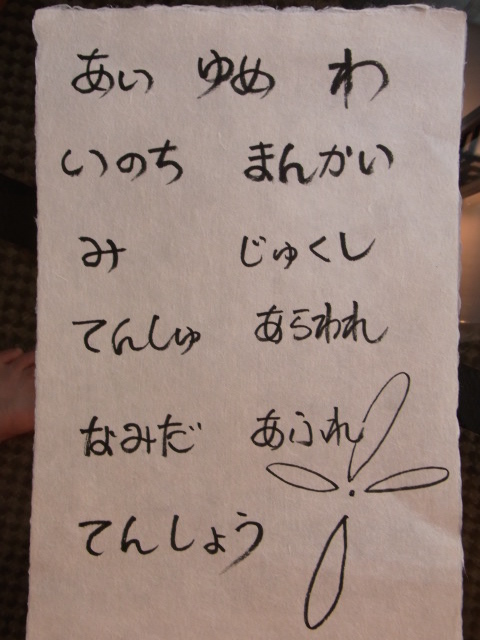 あい ゆめ わ
いのち まんかい
み じゅくし
てんしゅ あらわれ
なみだ あふれ
てんしょう